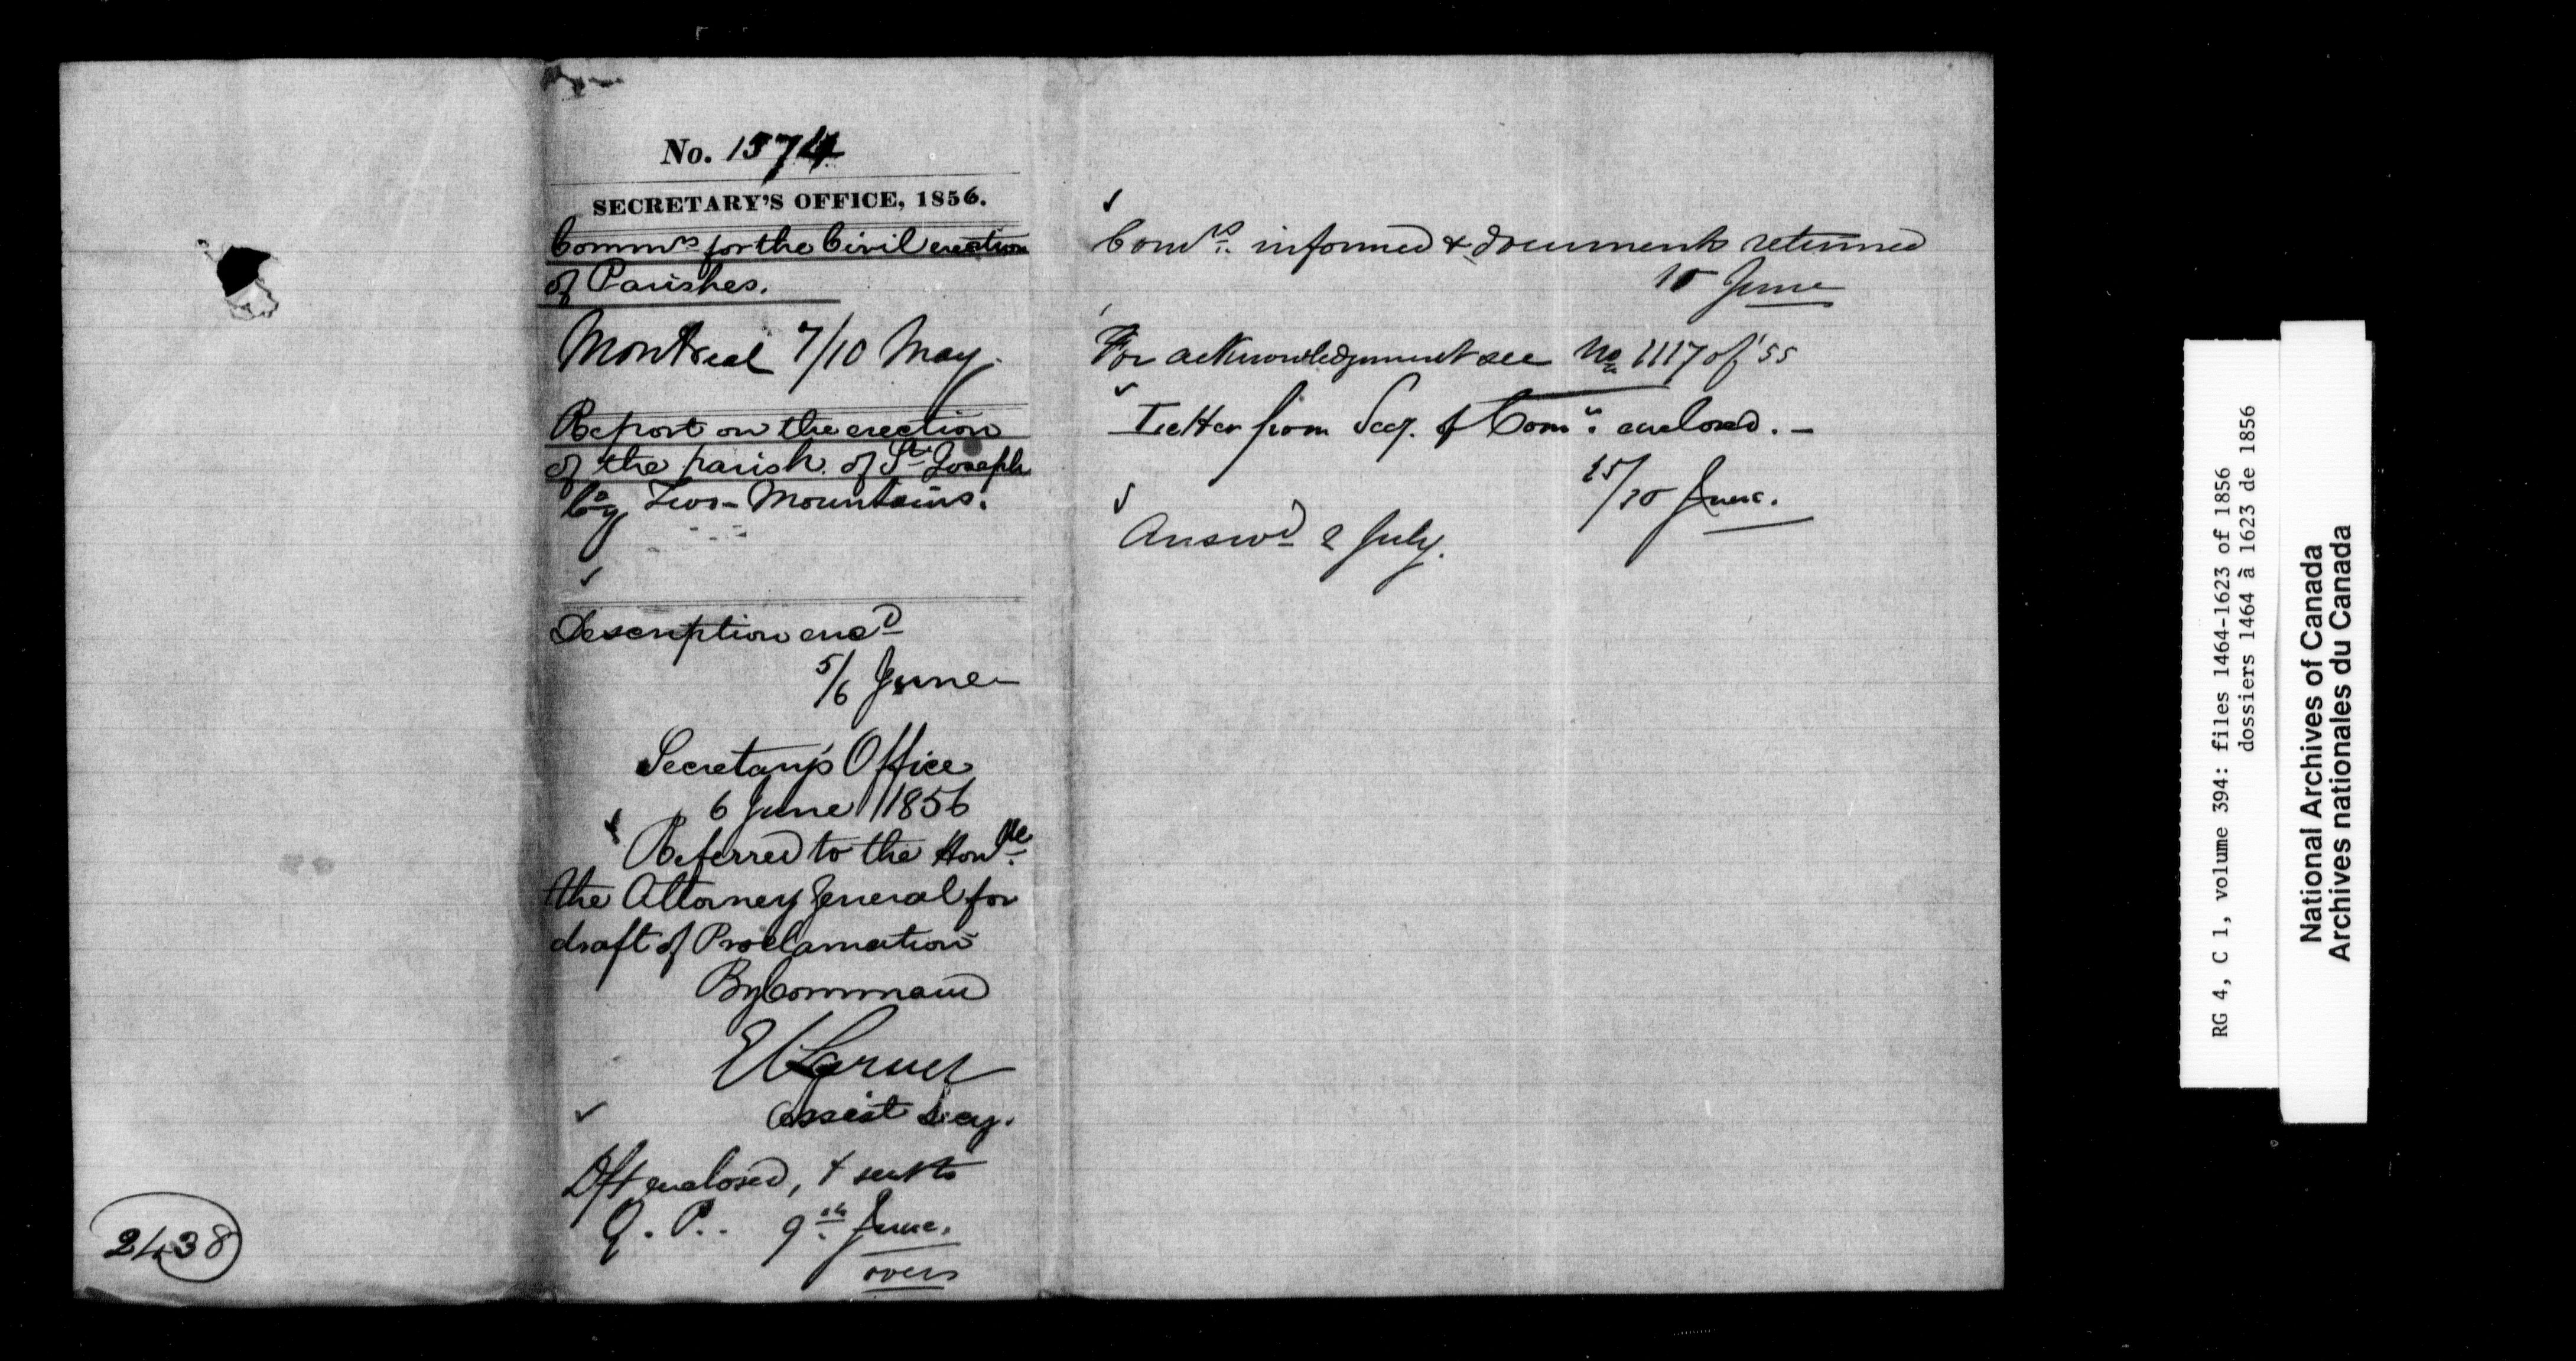 No. 1574
SECRETARY'S OFFICE, 1856.
Comm^rs for the Civil erection
of Parishes.
Montreal 7/10 May.
Report on the erection
of the parish of St. Joseph
Co^y Two-Mountains.
Description enc^d
5/6 June
Secretary's Office
6 June 1856
Referred to the Hon^ble
the Attorney General for
draft of Proclamation
By Command
Assist Secy.
Dft enclosed, & sent to
Q. P. 9th June.
over
2438
Com^rs informed & documents returned
10 June
For acknowledgment see No 1117 of '55
Letter from Secy. of Com^rs enclosed. -
25/30 June.
Answ^d 2 July.
RG 4, C 1, volume 394: files 1464-1623 of 1856
dossiers 1464 à 1623 de 1856
National Archives of Canada
Archives nationales du Canada